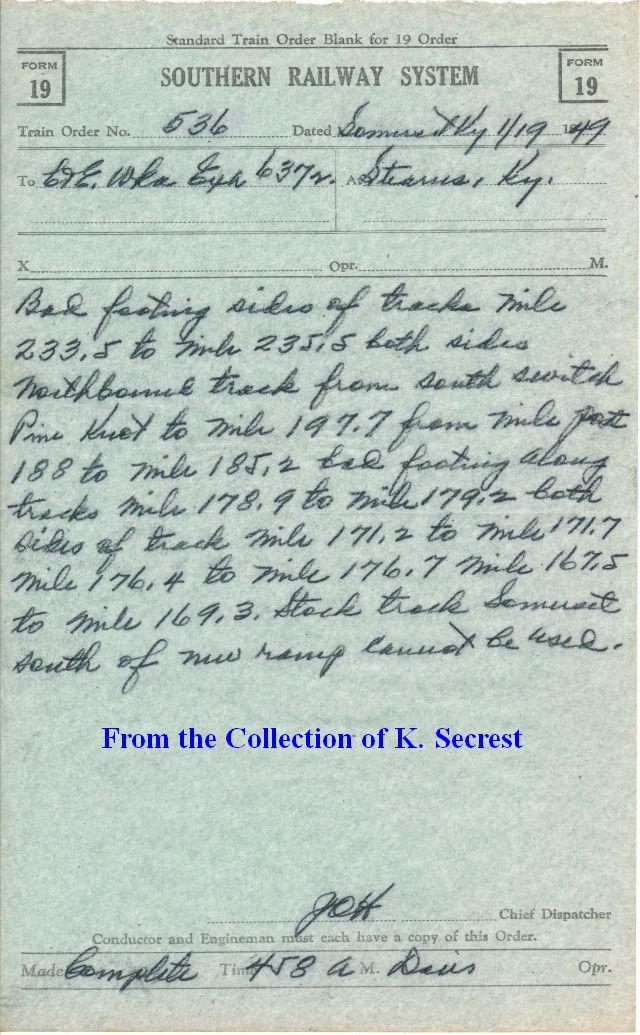 Standard Train Order Blank for 19 Order
FORM 19 SOUTHERN RAILWAY SYSTEM FORM 19
Train Order No. 536 Dated Somerset Ky 1/19 1949
To C&E. Wka Exa 6372. At Stearns, Ky.
X Opr. M.
Bad footing sides of tracks mile
233.5 to mile 235.5 both sides
Northbound track from south switch
Pine Knot to mile 197.7 from mile post
188 to mile 185.2 bad footing along
tracks mile 178.9 to mile 179.2 both
sides of track mile 171.2 to mile 171.7
mile 176.4 to mile 176.7 mile 167.5
to mile 169.3. Stock track Somerset
south of new ramp cannot be used.
From the Collection of K. Secrest
JCH Chief Dispatcher
Conductor and Engineman must each have a copy of this Order.
Made Complete Time 458 A M. Davis Opr.